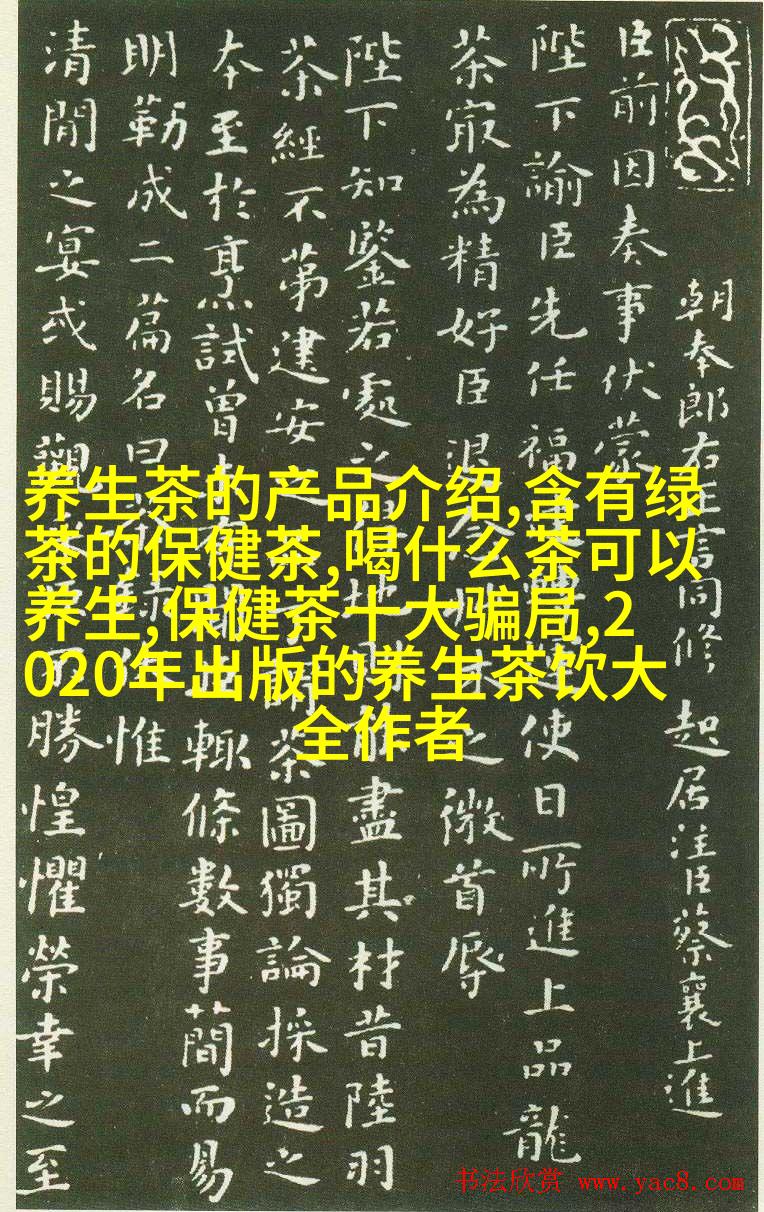 朝奉郎右正言同修起居注臣蔡襄上進
臣前因奏事伏蒙
陛下諭臣先任福使日所進上品龍
茶最為精好臣退之微首辱
陛下知鑒若處之地能盡其材昔陸羽
茶經不第建安之茶圖獨論採造之
本至於烹試曾輒條數事簡而易
明勒成二篇名曰惟
清閒之宴或賜觀不勝惶懼榮幸之至
养生茶的产品介绍,含有绿
茶的保健茶,喝什么茶可以
养生,保健茶十大骗局,2
020年出版的养生茶饮大
全作者
书法欣赏 www.yac8.com